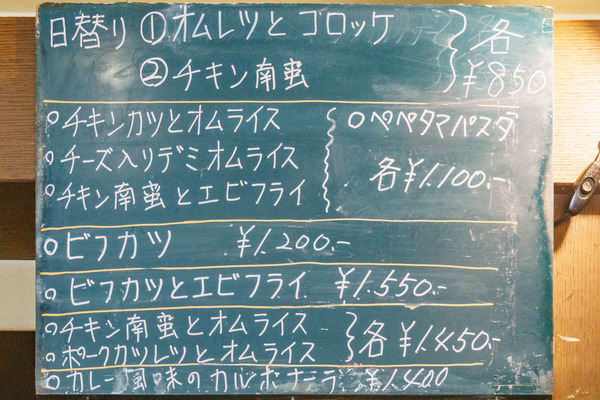 日替り ①オムレツとコロッケ 各
②チキン南蛮 ¥850
○チキンカツとオムライス ○ペペタマパスタ
○チーズ入りデミオムライス 各¥1.100.-
○チキン南蛮とエビフライ
○ビフカツ ¥1.200.-
○ビフカツとエビフライ ¥1.550.-
○チキン南蛮とオムライス 各¥1.450.-
○ポークカツレツとオムライス
○カレー風味のカルボナーラ ¥1.400